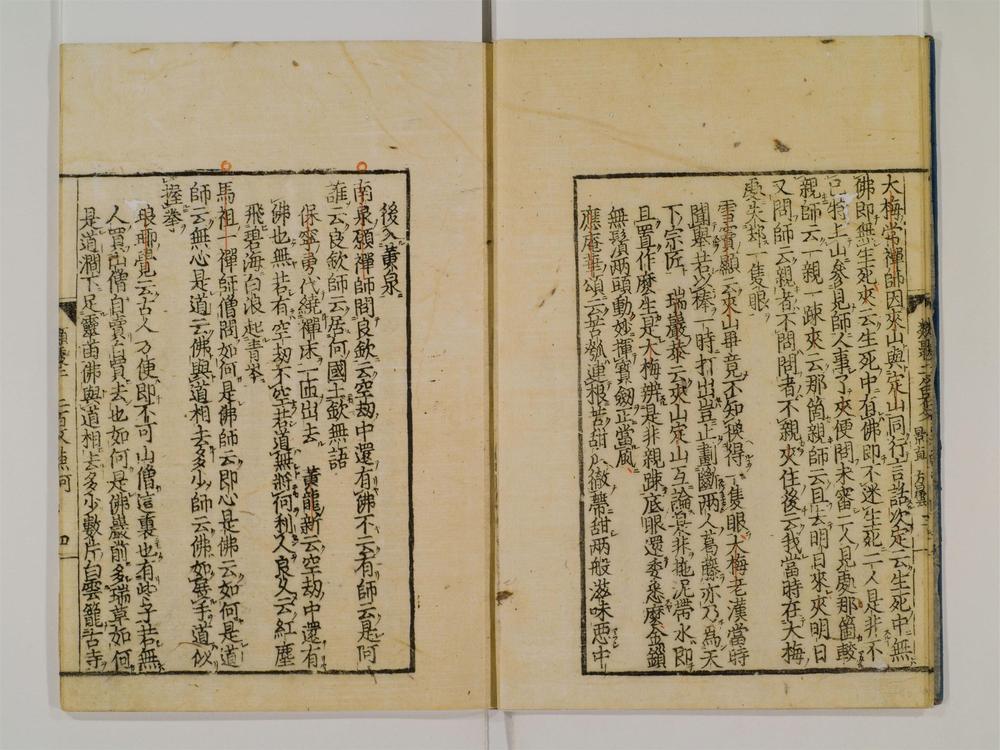 大梅常禪師因夾山與定山同行言話次定云生死中無
佛即無生死夾云生死中有佛即不迷生死二人是非不
已特上山參見師人事了夾便問未審二人見處那箇較
親師云一親一疎夾云那箇親師云且去明日來夾明日
又問師云親者不問問者不親夾住後云我當時在大梅
處失却一隻眼
雪竇顯云夾山畢竟不知換得一隻眼大梅老漢當時
聞舉若以棒一時打出豈止劃斷兩人葛藤亦乃為天
下宗匠 瑞巖恭云夾山定山互論是非拖泥帶水即
且置作麼生是大梅辨是非親疎底眼還委悉麼金鎖
無鬚兩頭動妙揮寶劔正當風
應庵華頌云苦瓠連根苦甜瓜徹蔕甜兩般滋味㤙中
後入黄泉
南泉願禪師問良欽云空劫中還有佛不云有師云是阿
誰云良欽師云居何國土欽無語
保寧勇代繞禪床一匝出去 黄龍新云空劫中還有
佛也無若有空劫不空若道無將何利人良久云紅塵
飛碧海白浪起青岑
馬祖一禪師僧問如何是佛師云即心是佛云如何是道
師云無心是道云佛與道相去多少師云佛如展手道似
握拳
琅琊覺云古人方便即不可山僧這裏也有些子若無
人買山僧自賣自買去也如何是佛巖前多瑞草如何
是道澗下足靈苗佛與道相去多少數片白雲籠古寺